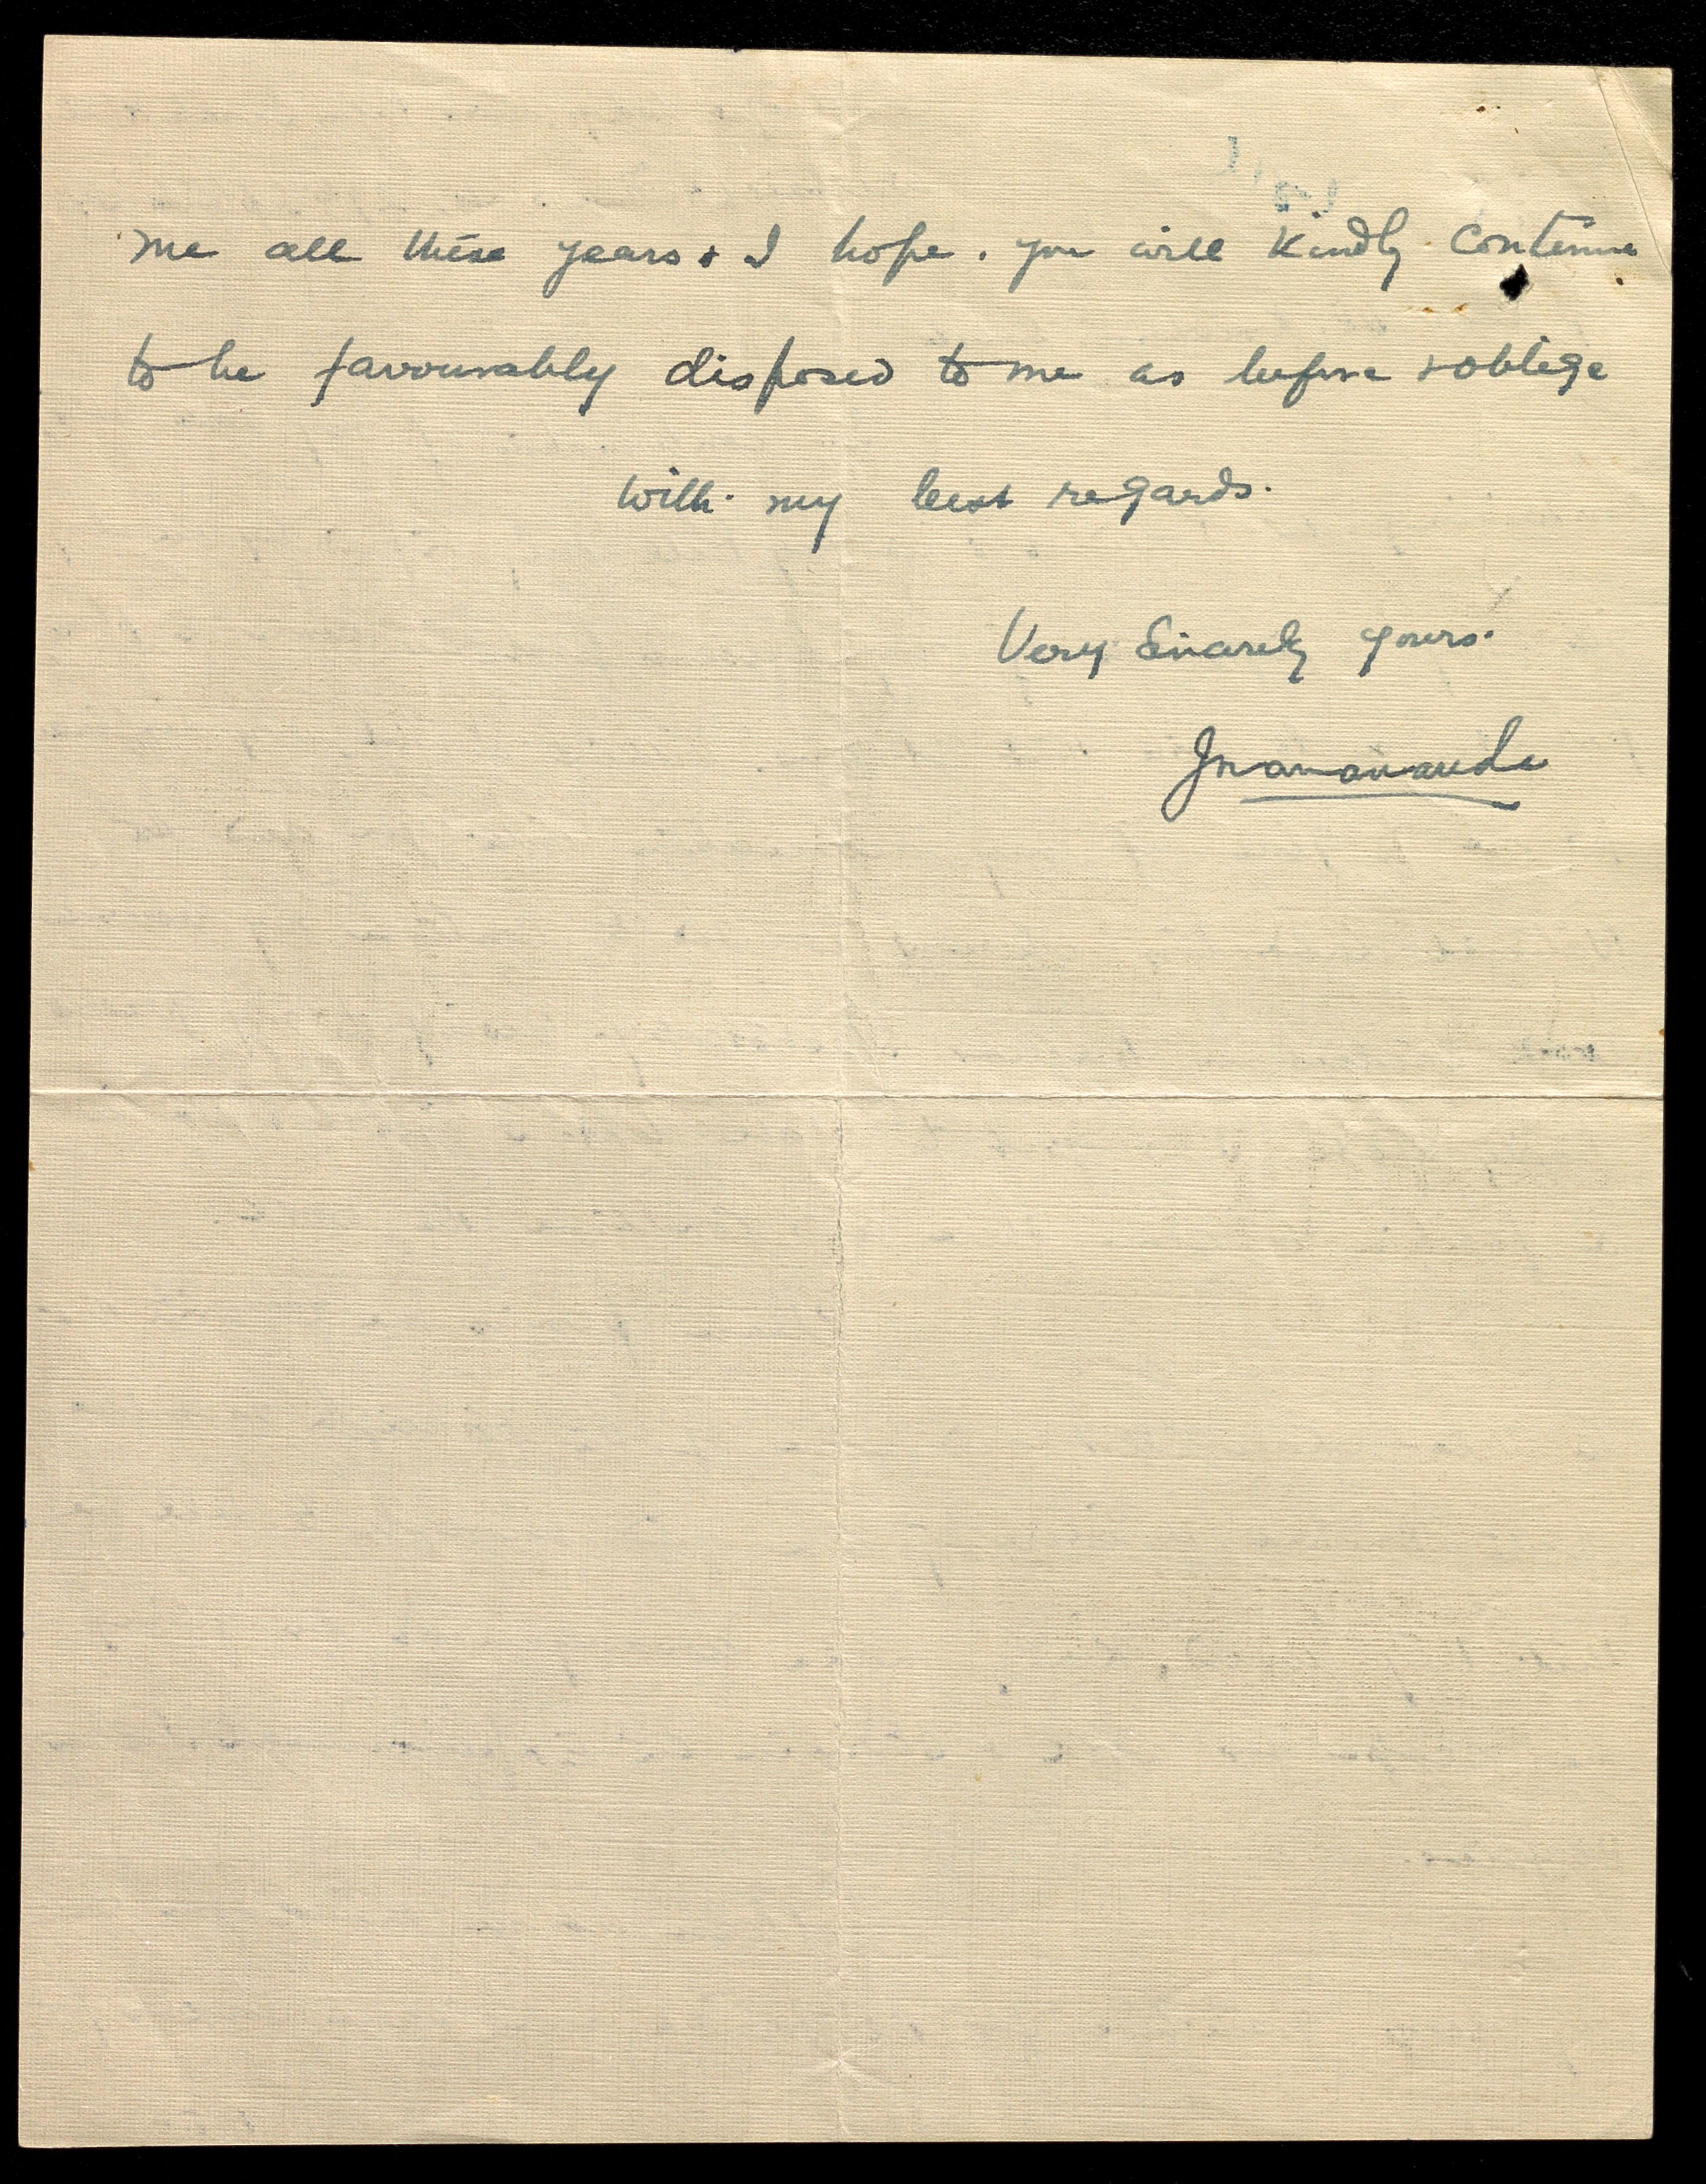 me all these years & I hope. you will kindly continue
to be favourably disposed to me as before & oblige
With my best regards.
Very Sincerely yours.
Jnanananda